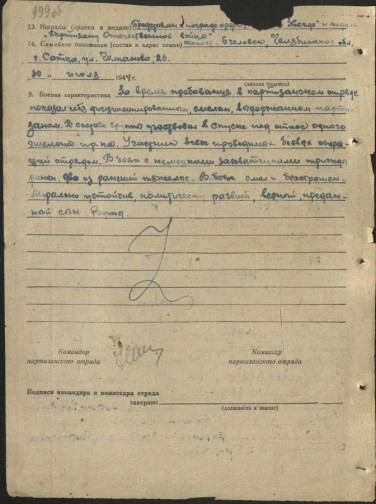 199 об
13. Награды (ордена и медали) Представлен к награде орден " Звезда" и медаль
"Партизану Отечественной войны"
14. Семейное положение (состав и адрес семьи) холост, 6 человек Челябинская обл.
г. Сатка, ул. 26
20 " июля 1944 г.
(личная подпись)
15. Боевая характеристика За время пребывания в партизанском отряде
показал себя дисциплинированным, смелым, выдержанным парти-
заном. В составе группы участвовал в спуске под откос одного
эшелона пр-ка. Участник всех проводимых боевых опера-
ций отрядом. В боях с немецкими захватчиками трижды
ранен, два из ранений тяжелое. В боях смел и бесстрашен.
Морально устойчив, политически развит, верный предан-
ный сын Родины.
Командир
партизанского отряда
Комиссар
партизанского отряда
Подписи командира и комиссара отряда
заверяю:
(должность и звание)